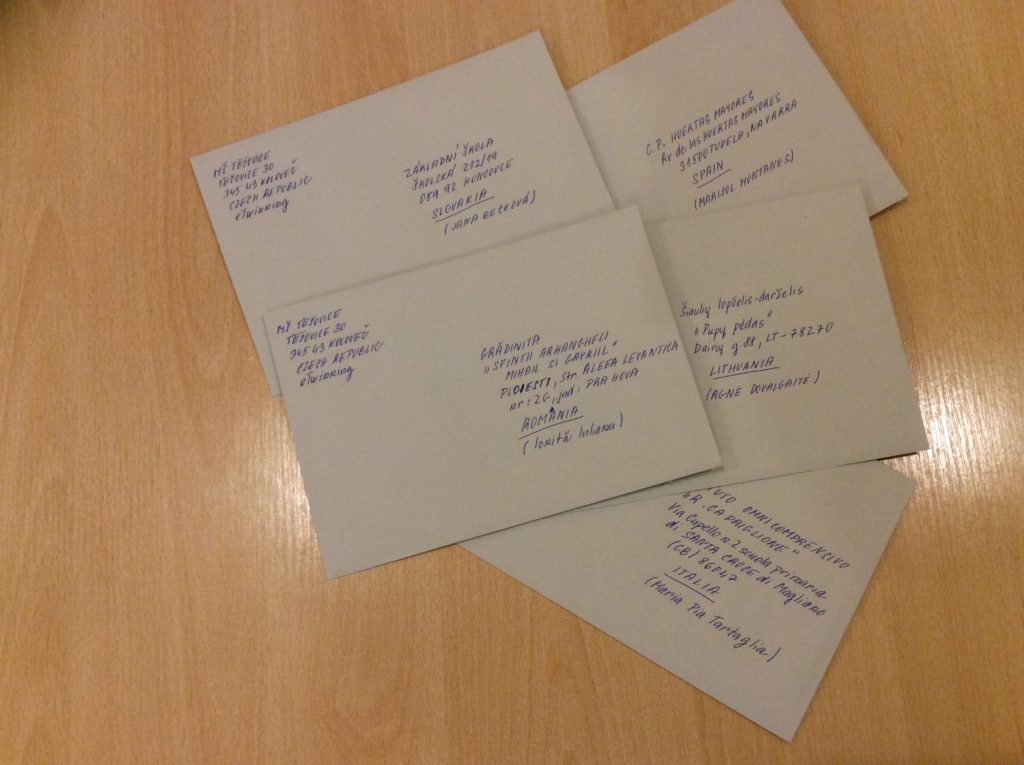 MŠ TĚŠOVICE
TĚŠOVICE 30
345 43 KOLOVEČ
CZECH REPUBLIC
eTwinning
ZÁKLADNÍ ŠKOLA
ŠKOLSKÁ 212/19
059 92 HUNCOVCE
SLOVAKIA
(JANA BECKOVÁ)
C.P. HUERTAS MAYORES
Av de las HUERTAS MAYORES
31500 TUDELA, NAVARRA
SPAIN
(MARISOL MONTANES)
MŠ TĚŠOVICE
TĚŠOVICE 30
345 43 KOLOVEČ
CZECH REPUBLIC
eTwinning
GRĂDINITA
"SFINTII ARHANGHELI
MIHAIL SI GAVRIIL"
PLOIESTI, str. ALEEA LEVANTICA
nr: 2G, jud: PRAHOVA
ROMÂNIA
(Ioniță Iuliana)
Šiaulių lopšelis-darželis
"Pupų pėdas"
Dainų g 88, LT-78270
LITHUANIA
(AGNĖ DOVALGAITĖ)
OMNICOMPRENSIVO
"R. CAPRIGLIONE"
Via Cupello n. 2 scuola primaria
di SANTA CROCE di Magliano
(CB) 86047
ITALIA
(Maria Pia Tartaglia)